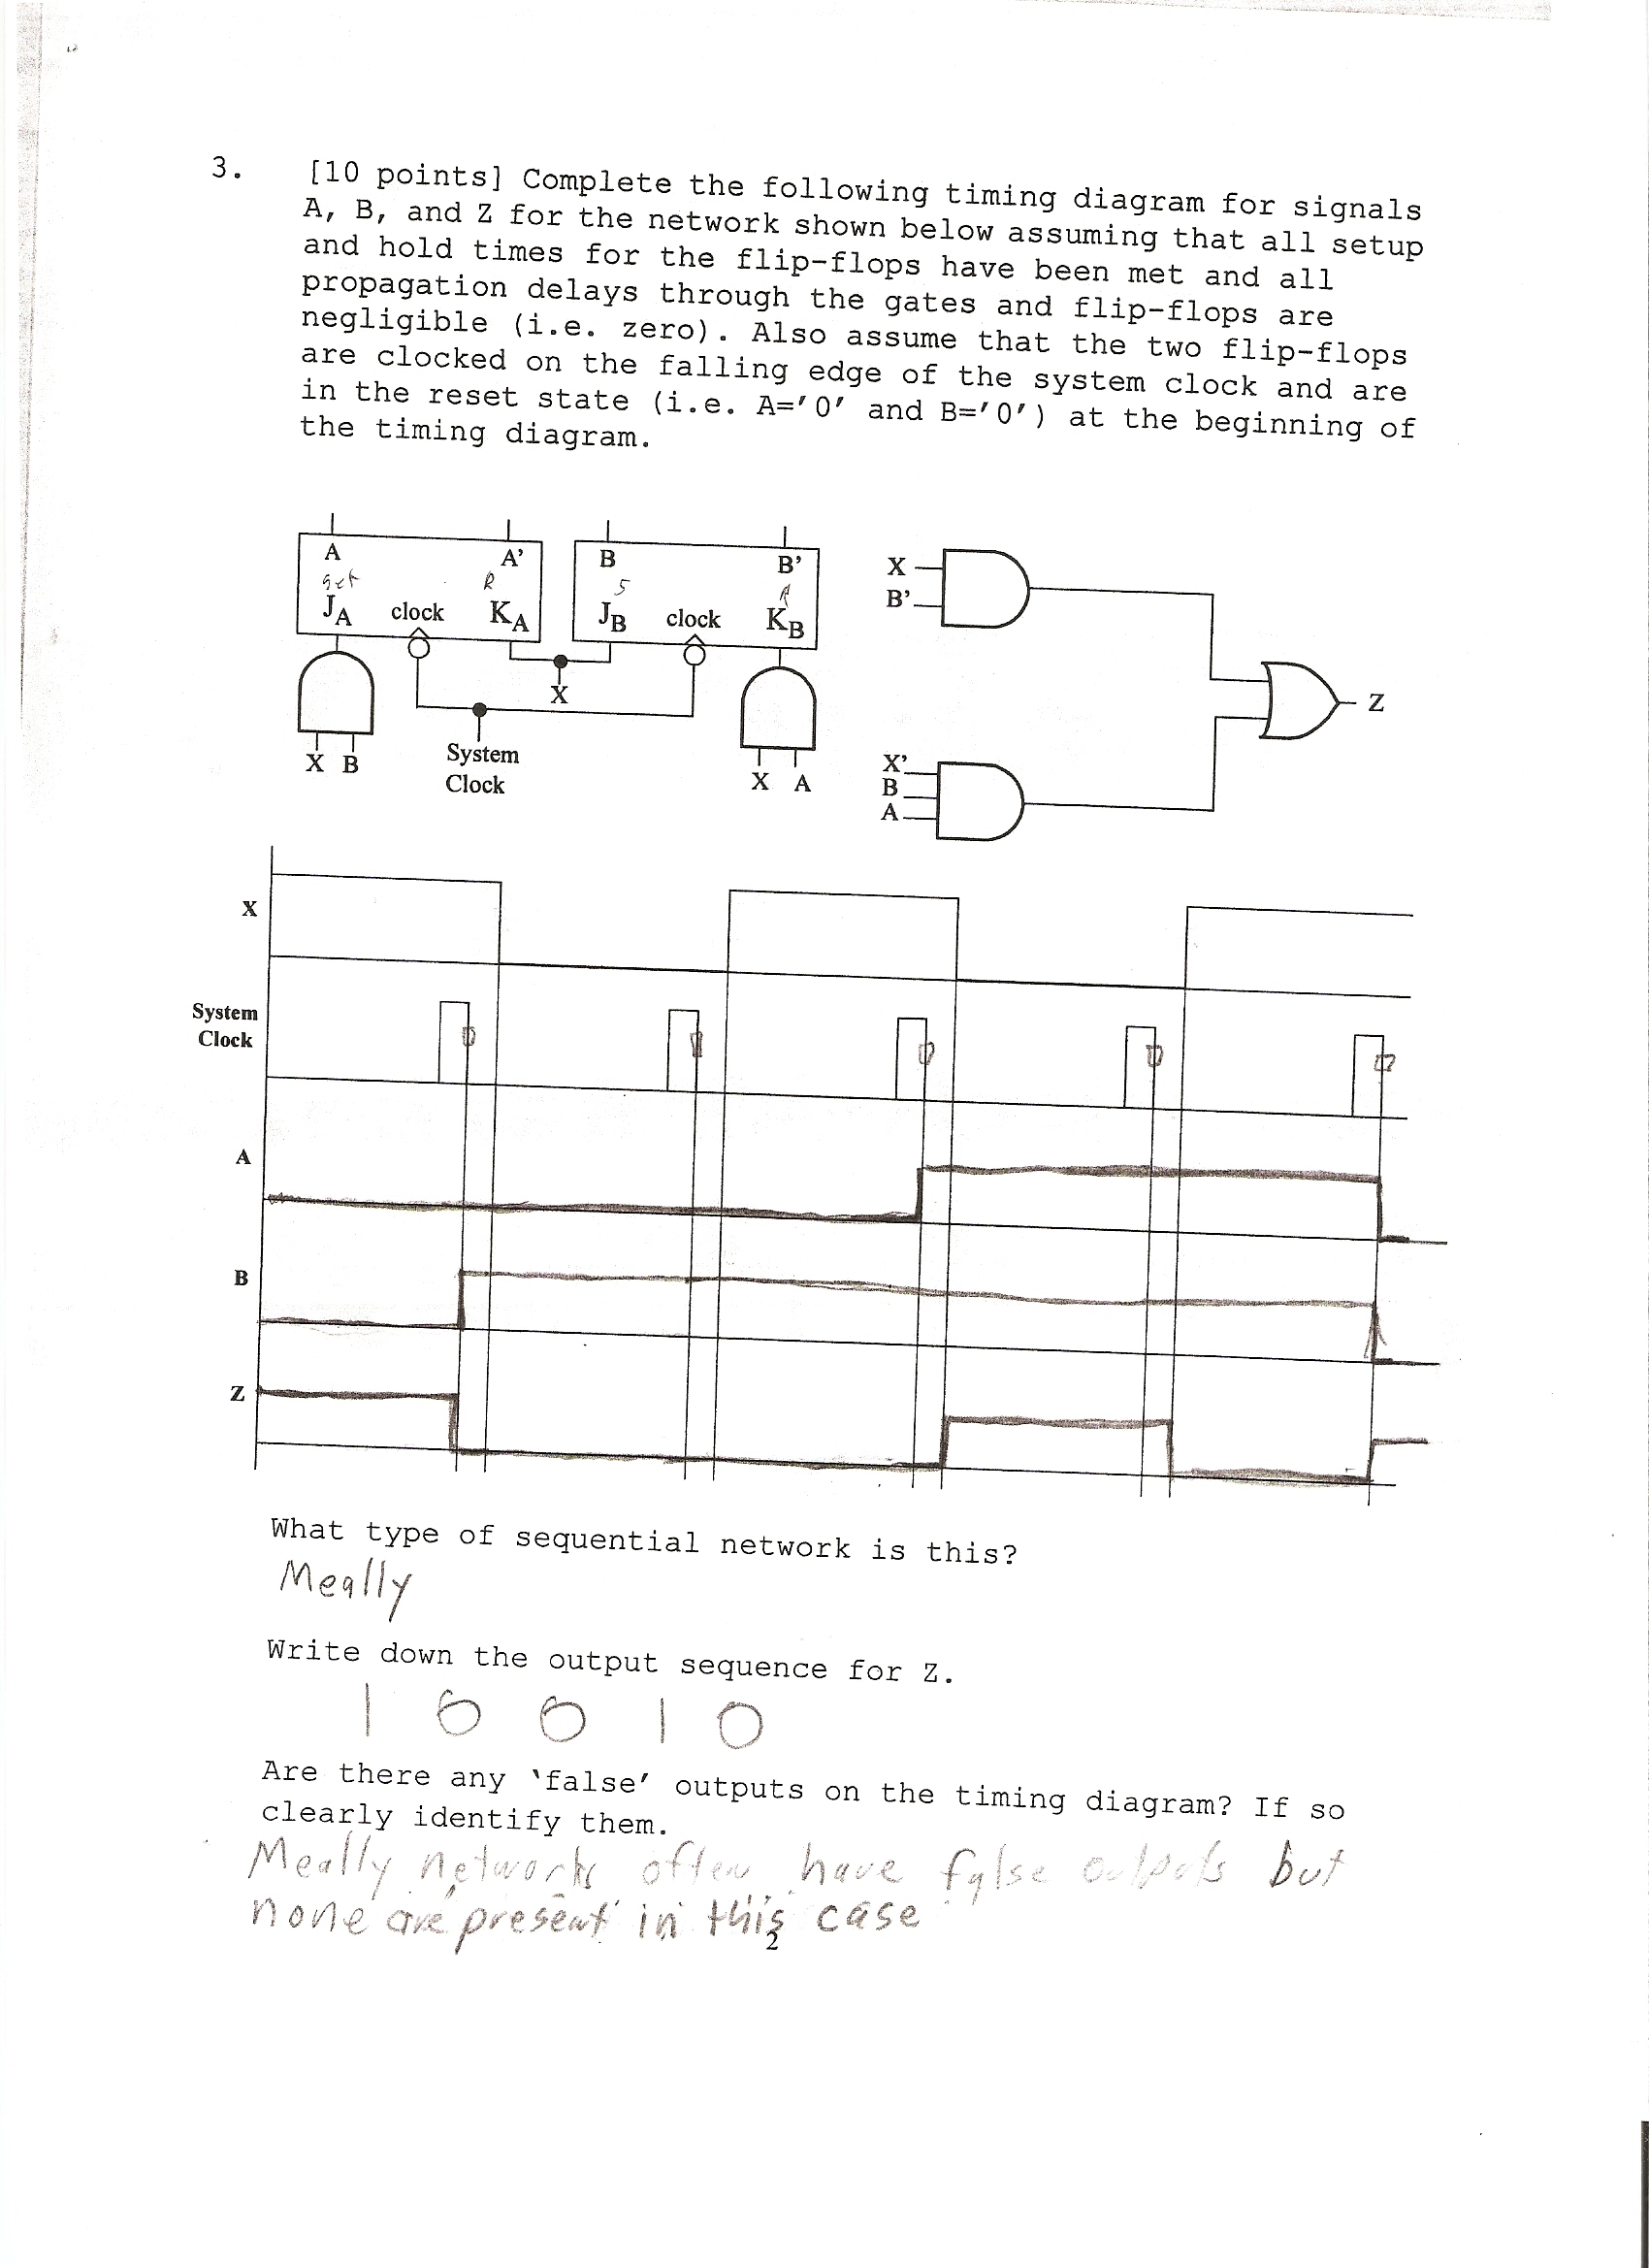 3. [10 points] Complete the following timing diagram for signals
A, B, and Z for the network shown below assuming that all setup
and hold times for the flip-flops have been met and all
propagation delays through the gates and flip-flops are
negligible (i.e. zero). Also assume that the two flip-flops
are clocked on the falling edge of the system clock and are
in the reset state (i.e. A='0' and B='0') at the beginning of
the timing diagram.
A A' B B'
set R S R
JA clock KA JB clock KB
X
X B
System
Clock
X A
X
B'
Z
X'
B
A
X
System
Clock
A
B
Z
What type of sequential network is this?
Meally
Write down the output sequence for Z.
1 0 0 1 0
Are there any 'false' outputs on the timing diagram? If so
clearly identify them.
Meally networks often have false outputs but
none are present in this case
2